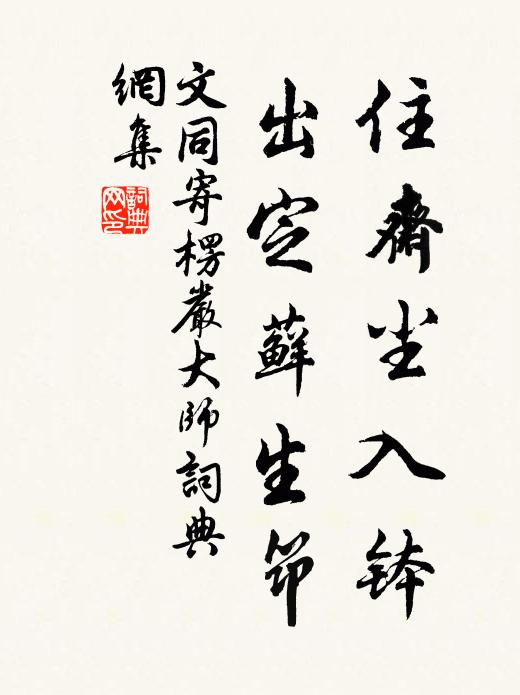 住齋尘入鉢
出定蘚生筇
文同寄楞嚴大師詞典
網集
詞典網印